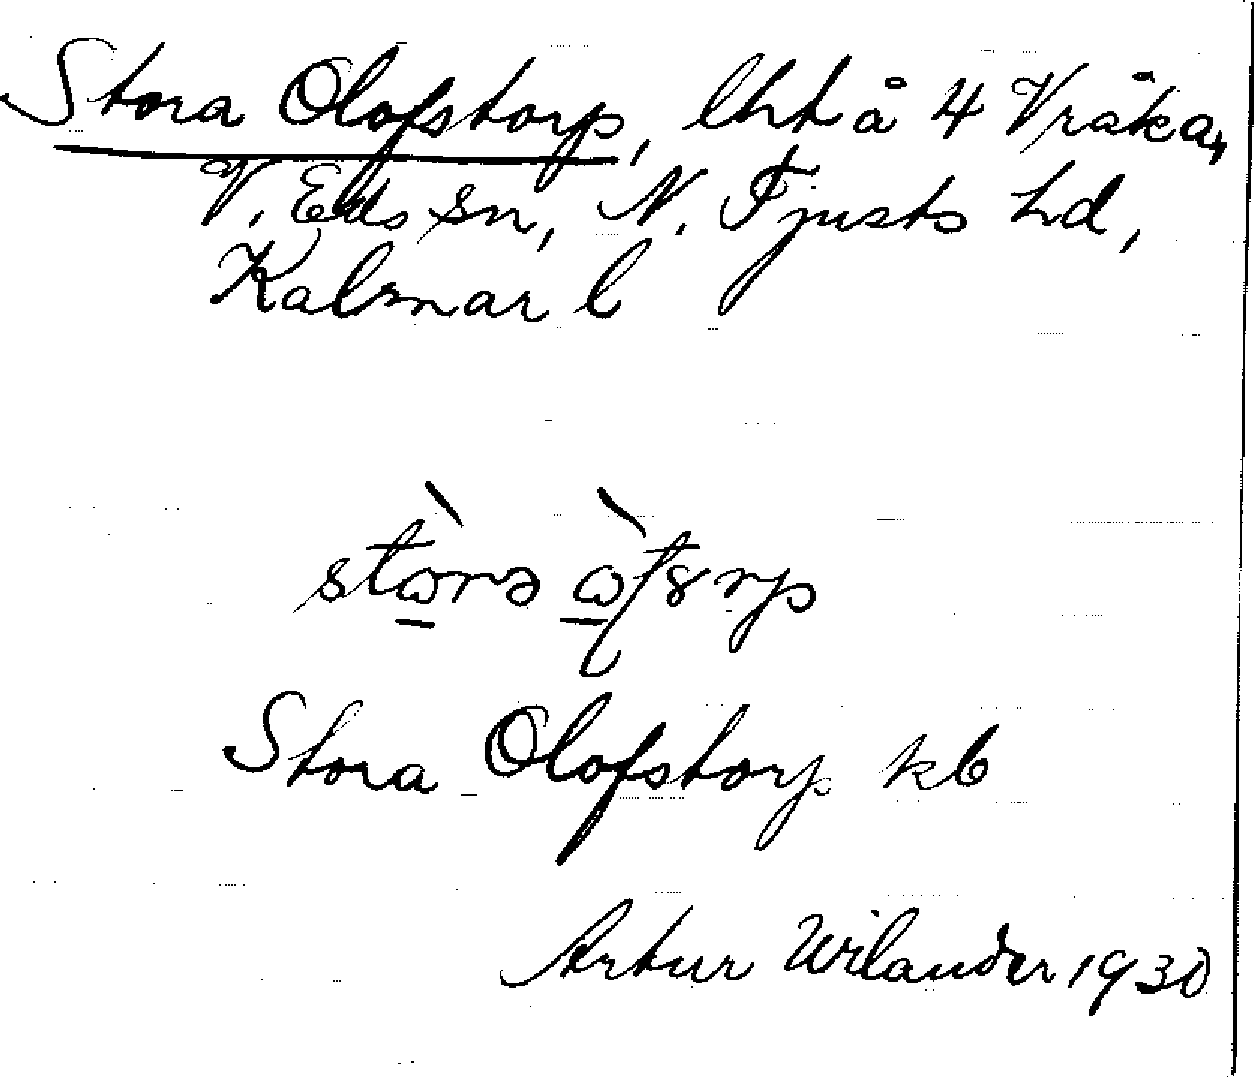 Stora Olofstorp, lht å 4 Vråka,
V. Eds sn, N. Tjusts hd,
Kalmar l
Stora Olofstorp kb
Artur Wilander 1930